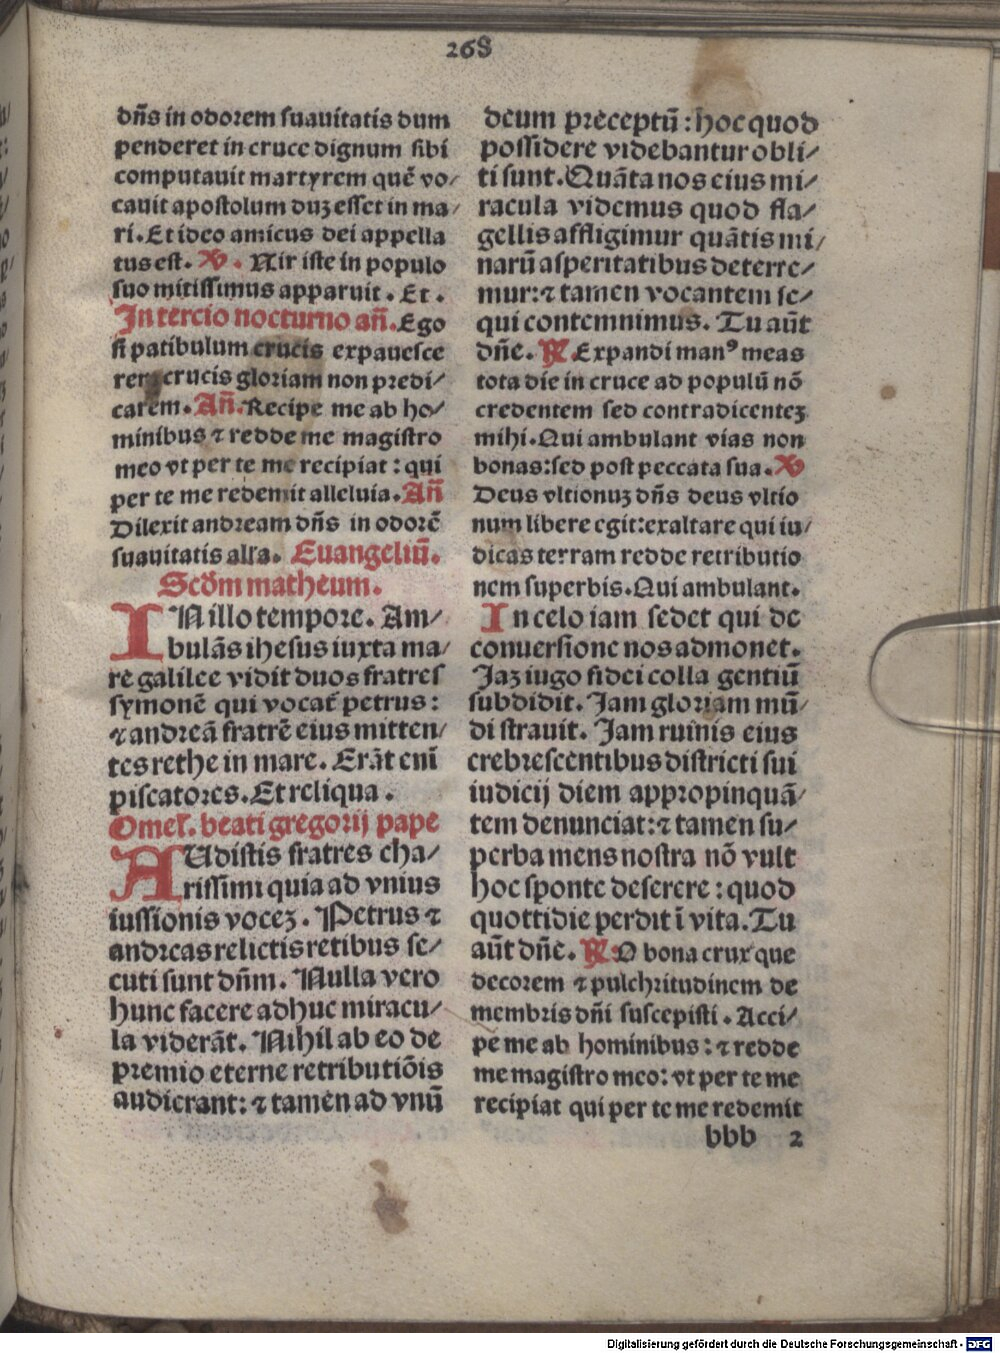 268
dñs in odorem suauitatis dum
penderet in cruce dignum sibi
computauit martyrem quē vo/
cauit apostolum duꝫ esset in ma/
ri. Et ideo amicus dei appella
tus est. ℣. Uir iste in populo
suo mitissimus apparuit. Et.
In tercio nocturno añ. Ego
si patibulum crucis expauesce
rem crucis gloriam non predi/
carem. Añ. Recipe me ab ho/
minibus ⁊ redde me magistro
meo vt per te me recipiat: qui
per te me redemit alleluia. Añ
Dilexit andream dñs in odorē
suauitatis alla. Euangeliū.
Scd̄m matheum.
IN illo tempore. Am/
bulās ihesus iuxta ma/
re galilee vidit duos fratres
symonē qui vocat̄ petrus:
⁊ andreā fratrē eius mitten/
tes rethe in mare. Erāt eni̅
piscatores. Et reliqua.
Omel̄. beati gregorij pape
AUdistis fratres cha/
rissimi quia ad vnius
iussionis voceꝫ. Petrus ⁊
andreas relictis retibus se/
cuti sunt dñm. Nulla vero
hunc facere adhuc miracu/
la viderāt. Nihil ab eo de
premio eterne retributiōis
audierant: ⁊ tamen ad vnū
deum preceptū: hoc quod
possidere videbantur obli/
ti sunt. Quāta nos eius mi/
racula videmus quod fla/
gellis affligimur quātis mi/
narū asperitatibus deterre/
mur: ⁊ tamen vocantem se/
qui contemnimus. Tu aūt
dñe. ℟. Expandi manꝰ meas
tota die in cruce ad populū nō
credentem sed contradicenteꝫ
mihi. Qui ambulant vias non
bonas: sed post peccata sua. ℣
Deus vltionuꝫ dñs deus vltio
num libere egit: exaltare qui iu/
dicas terram redde retributio
nem superbis. Qui ambulant.
In celo iam sedet qui de
conuersione nos admonet.
Jaꝫ iugo fidei colla gentiū
subdidit. Jam gloriam mū/
di strauit. Jam ruinis eius
crebrescentibus districti sui
iudicij diem appropinquā/
tem denunciat: ⁊ tamen su/
perba mens nostra nō vult
hoc sponte deserere: quod
quottidie perdit ī vita. Tu
aūt dñe. ℟. O bona crux que
decorem ⁊ pulchritudinem de
membris dñi suscepisti. Acci/
pe me ab hominibus: ⁊ redde
me magistro meo: vt per te me
recipiat qui per te me redemit
bbb 2
Digitalisierung gefördert durch die Deutsche Forschungsgemeinschaft - DFG